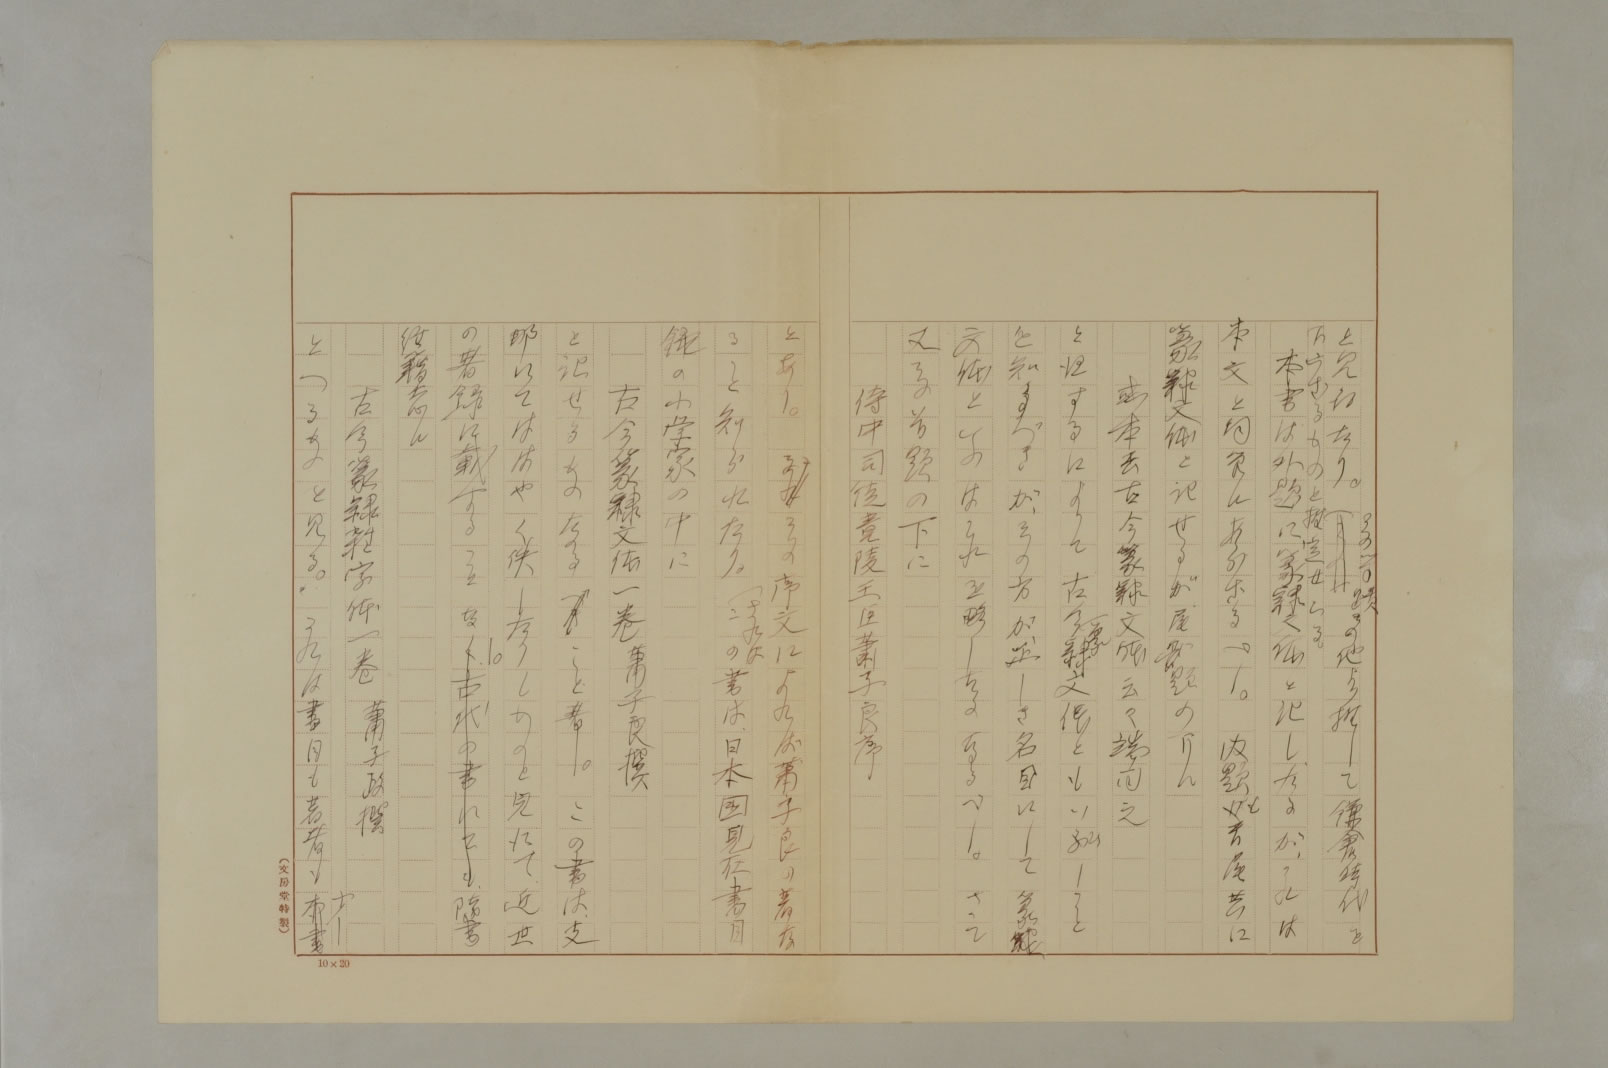 と見えたり。
下らざるものと推定せらる
本書は外題に篆隷文体と記したるが、これは
本文と同筆にあらざるべし。内題も首尾共に
篆隷文体と記せるが尾題の方に
或本云古今篆隷文体云々端内之
と注するによりて古今篆隷文体ともいひしこと
を知るべきが、その方が正しき名目にして篆隷
文体といふはそれを略したるなるべし。さて
又その首題の下に
侍中司徒竟陵王臣蕭子良序
とあり。その序文によれば蕭子良の著な
ること知られたり。この書は、日本国見在書目
録の小学家の中に
古今篆隷文体一巻 蕭子良撰
と記せるものなること著し。この書は、支
那にてはやく佚したりしものと見えて、近世
の書録に載することなし。古代の書にても、隋書
経籍志に
古今篆隷雑字体一巻 蕭子政撰
といへるものと見る。これは書目も著者も本書
(文房堂特製)
10×20